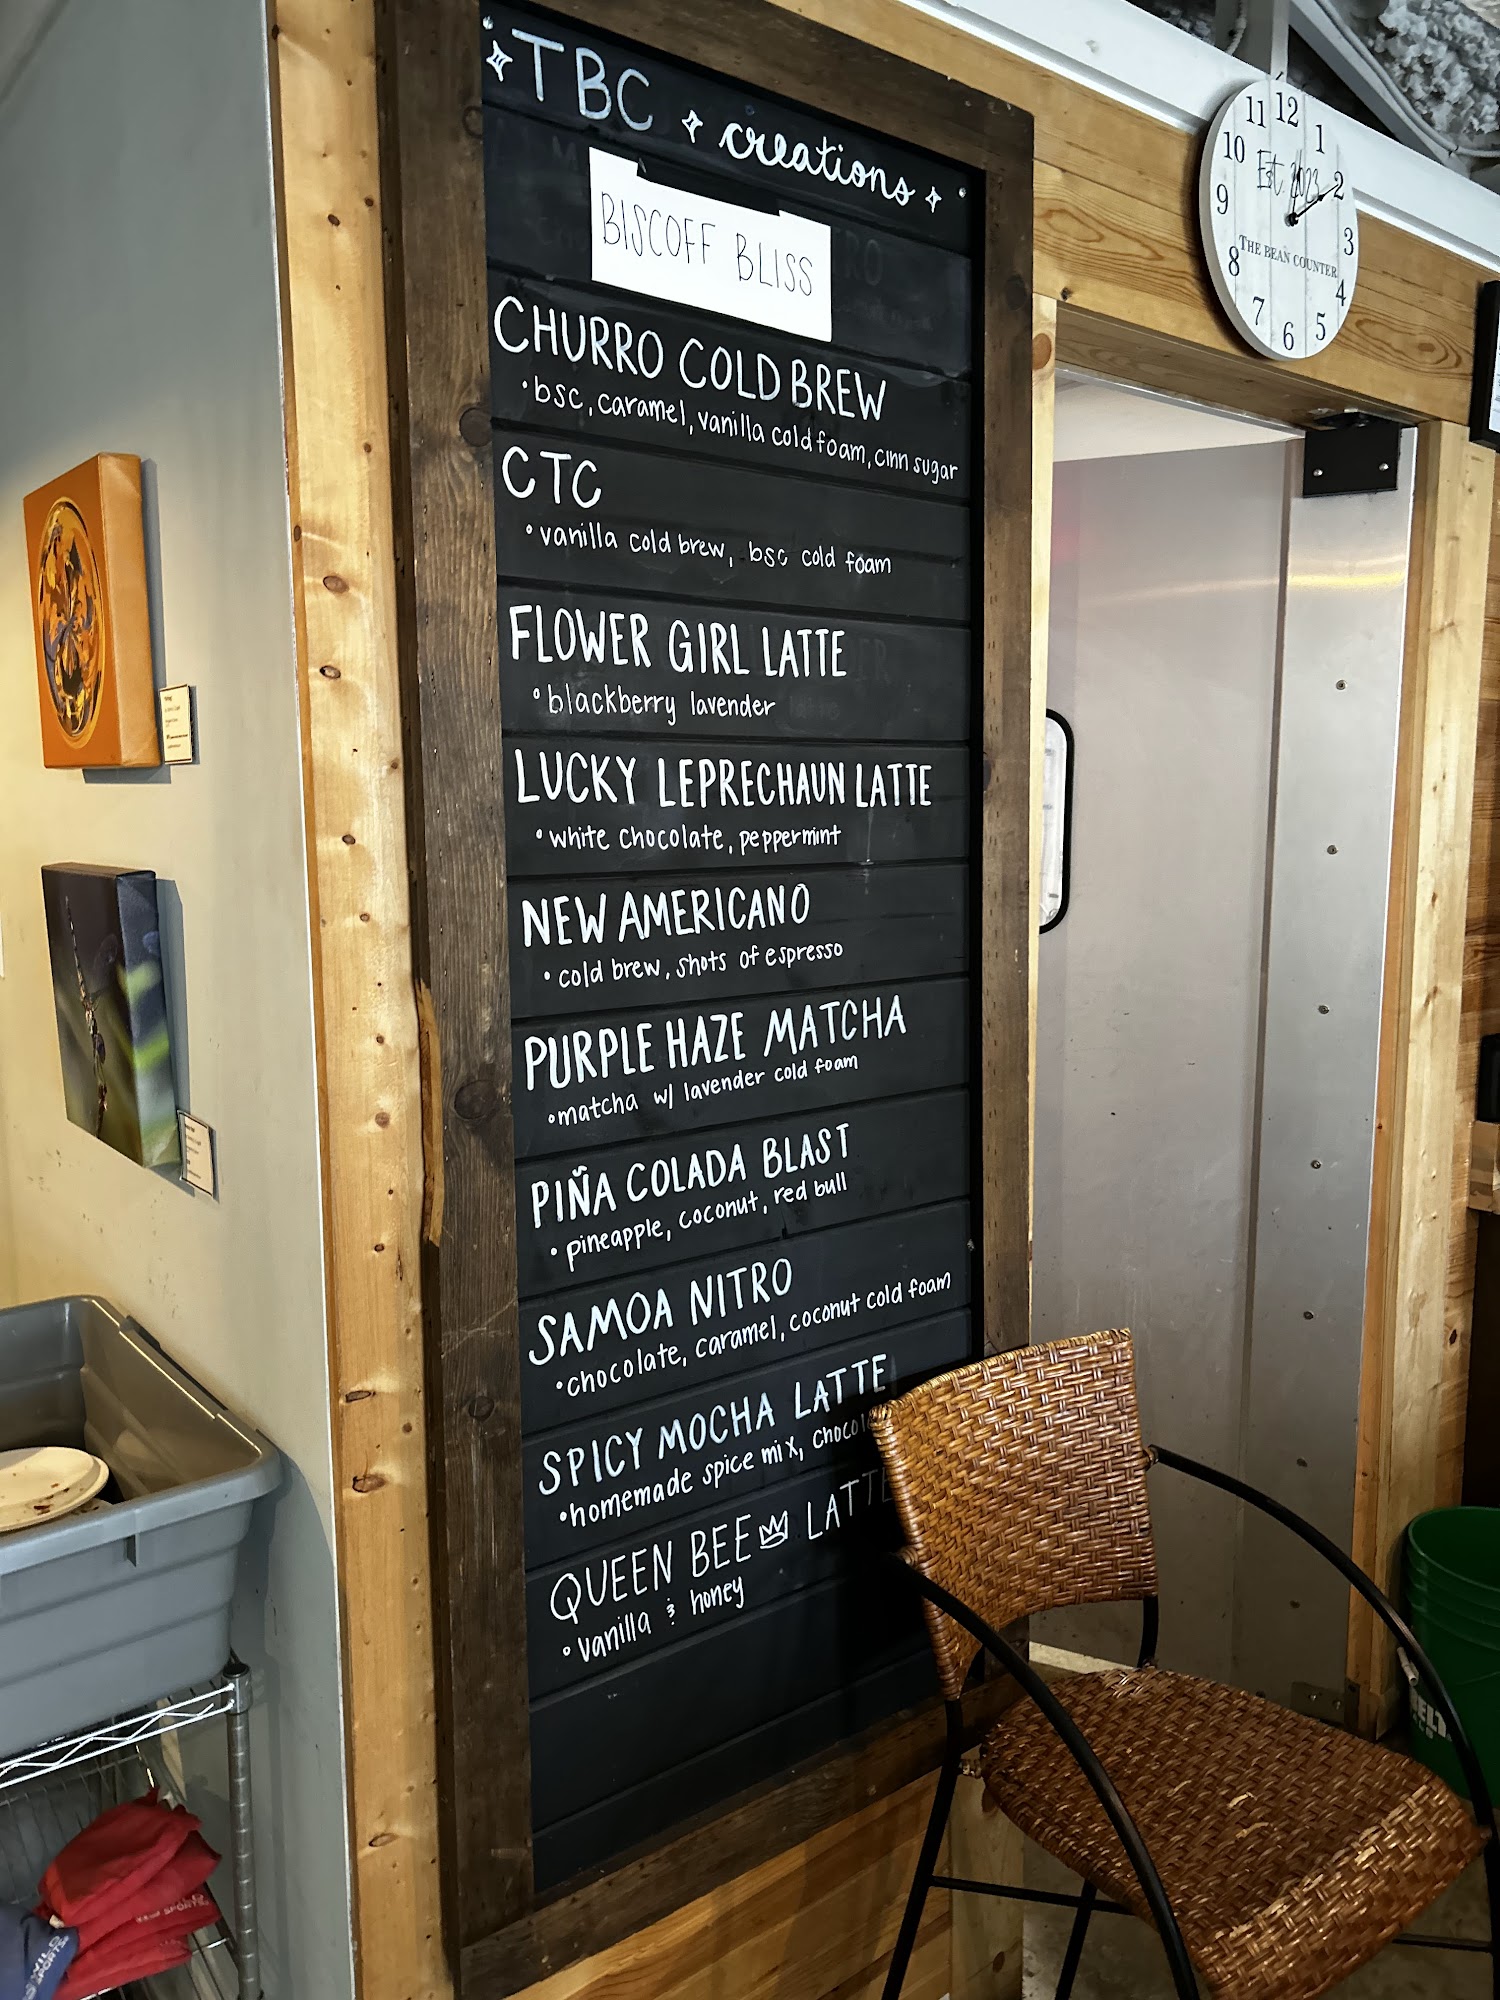 TBC creations
BISCOFF BLISS
CHURRO COLD BREW
• bsc, caramel, vanilla cold foam, cinn sugar
CTC
• vanilla cold brew, bsc cold foam
FLOWER GIRL LATTE
• blackberry lavender
LUCKY LEPRECHAUN LATTE
• white chocolate, peppermint
NEW AMERICANO
• cold brew, shots of espresso
PURPLE HAZE MATCHA
• matcha w/ lavender cold foam
PIÑA COLADA BLAST
• pineapple, coconut, red bull
SAMOA NITRO
• chocolate, caramel, coconut cold foam
SPICY MOCHA LATTE
• homemade spice mix, chocol
QUEEN BEE LATTE
• vanilla & honey
11 12 1
10 2
Est. 2023
9 3
THE BEAN COUNTER
8 4
7 6 5